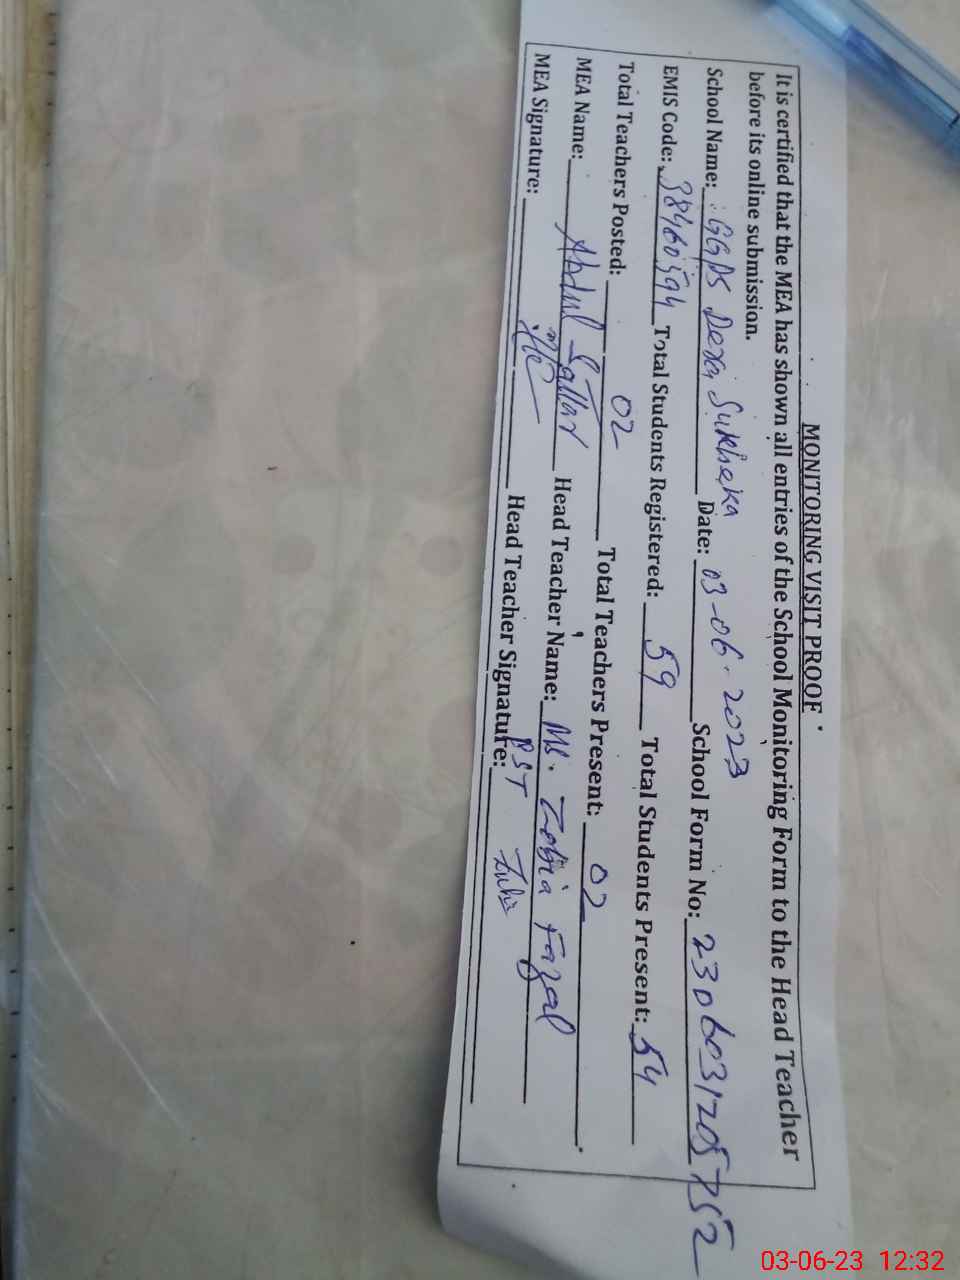 MONITORING VISIT PROOF
It is certified that the MEA has shown all entries of the School Monitoring Form to the Head Teacher
before its online submission.
School Name: GGPS Dexa Sukheka Date: 03-06-2023 School Form No: 2306031205752
EMIS Code: 38460594 Total Students Registered: 59 Total Students Present: 54
Total Teachers Posted: 02 Total Teachers Present: 02
MEA Name: Abdul Sattar Head Teacher Name: Ms. Zobia Fazal
MEA Signature: Head Teacher Signature: PST
03-06-23 12:32